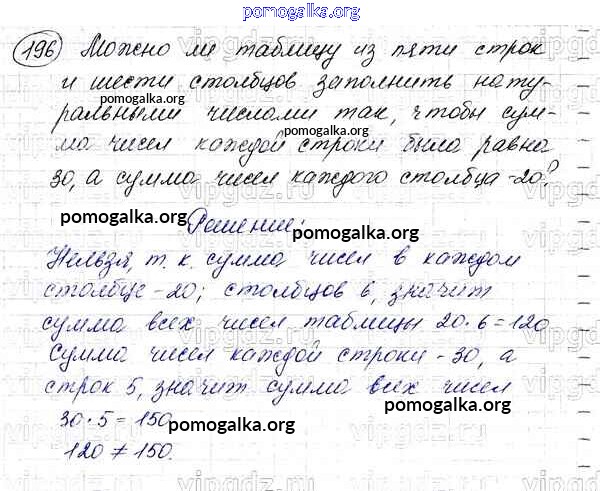 pomogalka.org
196 Можно ли таблицу из пяти строк
и шести столбцов заполнить нату-
pomogalka.org
ральными числами так, чтобы сум-
pomogalka.org
ма чисел каждой строки была равна
30, а сумма чисел каждого столбца - 20?
pomogalka.org
Решение:
pomogalka.org
Нельзя, т. к. сумма чисел в каждом
столбце - 20; столбцов 6, значит
сумма всех чисел таблицы 20·6=120
Сумма чисел каждой строки - 30, а
строк 5, значит сумма всех чисел
pomogalka.org
30·5=150,
pomogalka.org
120≠150.